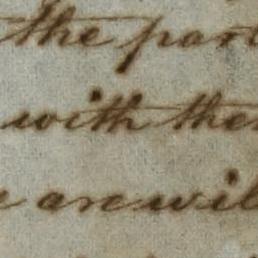 the part
with the
are wil